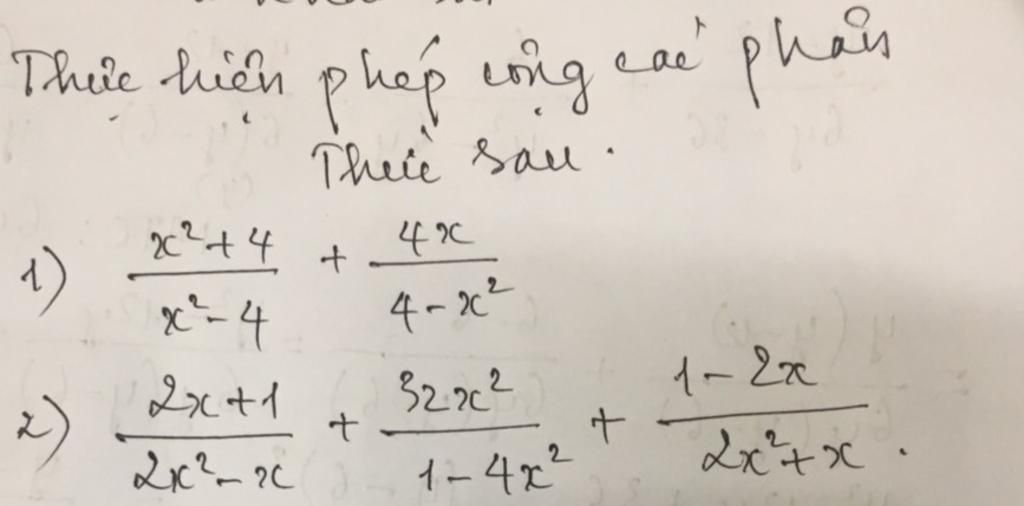 Thực hiện phép cộng các phân
Thức sau.
1) \frac{x^2+4}{x^2-4} + \frac{4x}{4-x^2}
2) \frac{2x+1}{2x^2-x} + \frac{32x^2}{1-4x^2} + \frac{1-2x}{2x^2+x}.